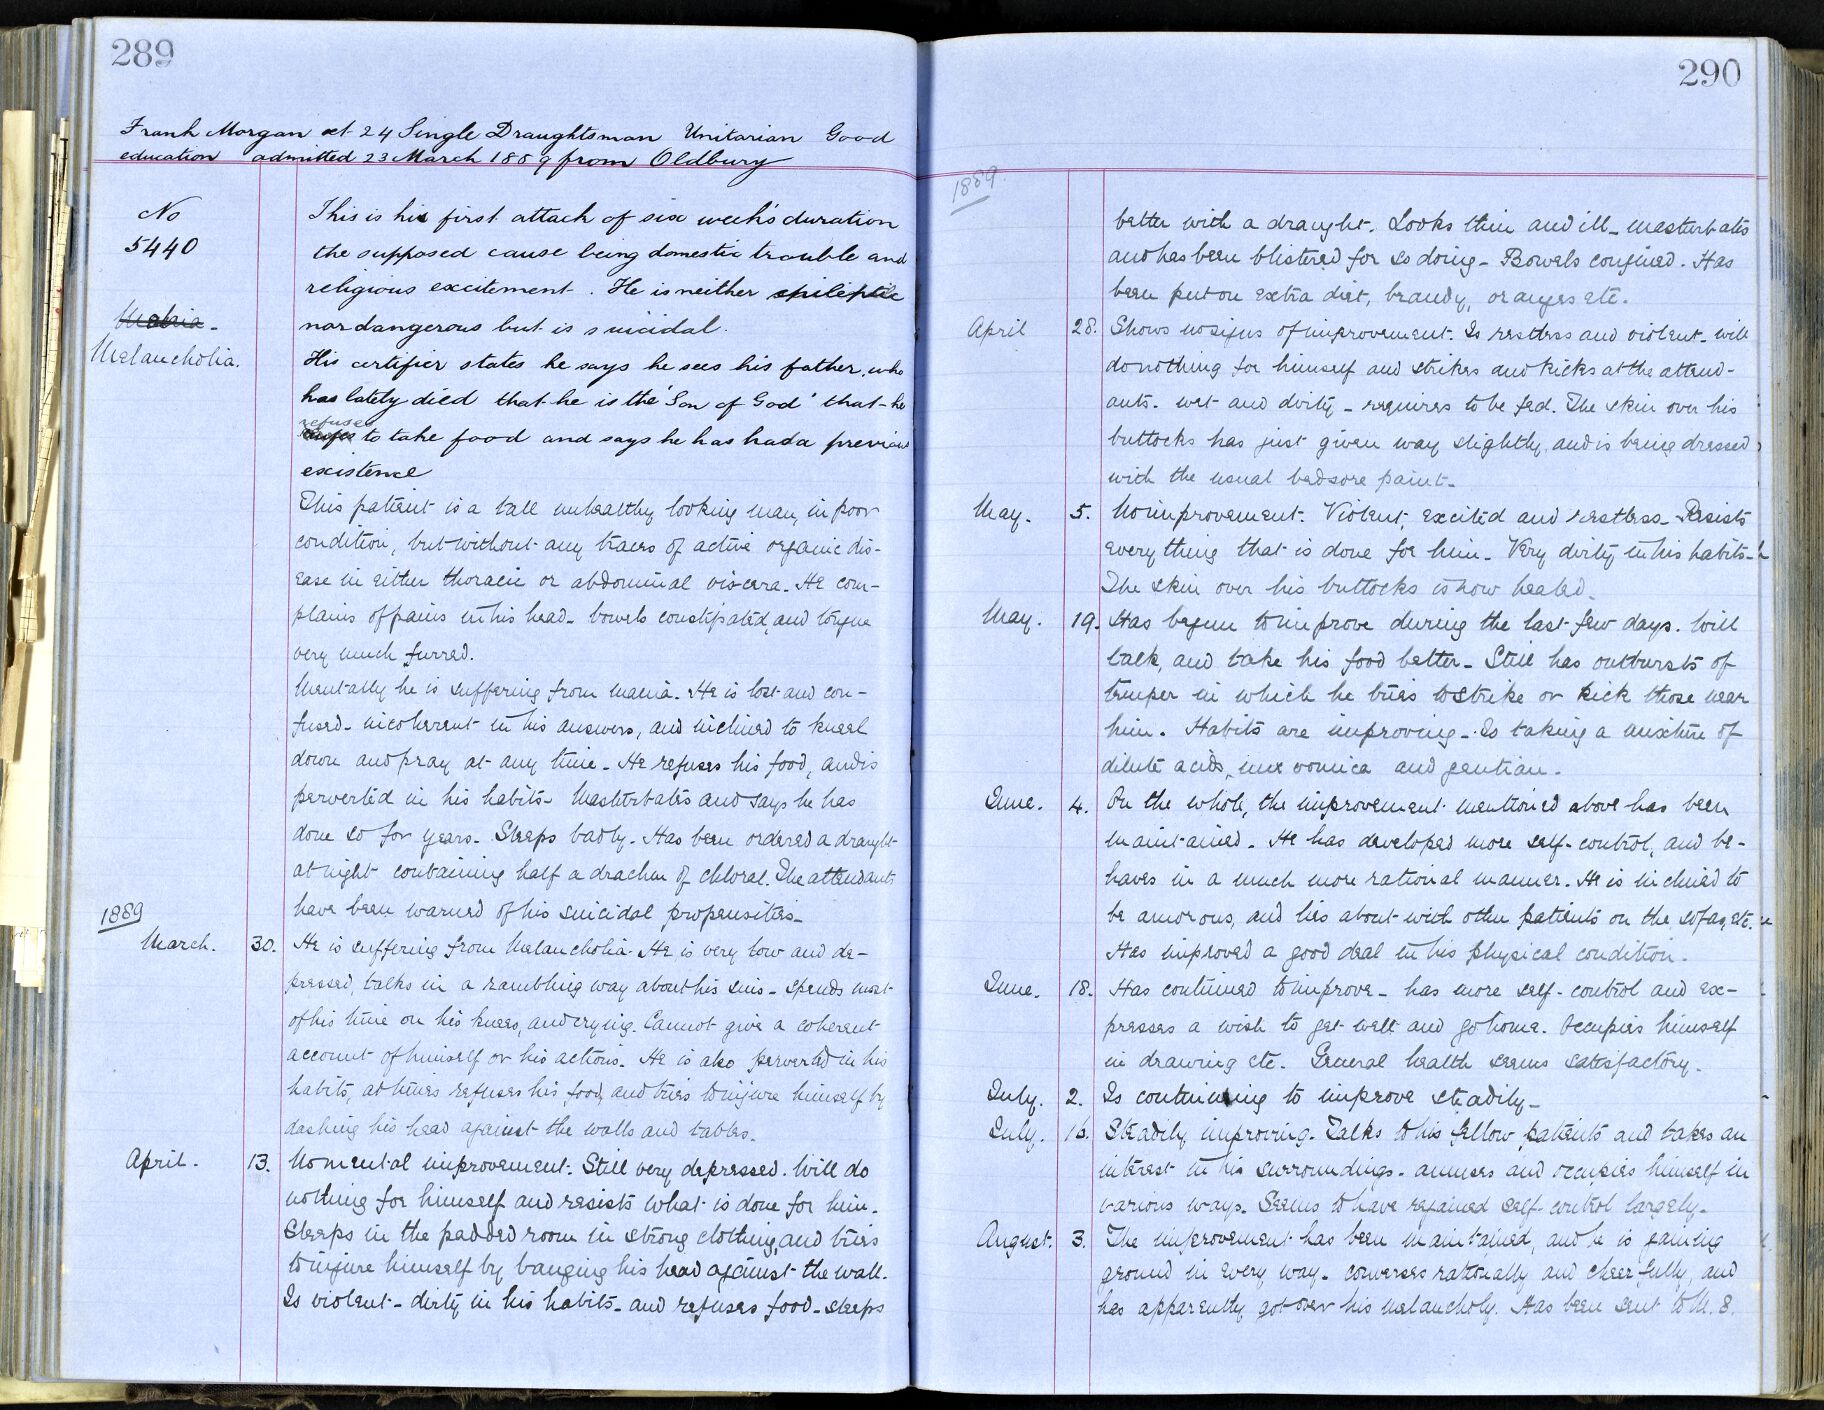 289
Frank Morgan æt 24 Single Draughtsman Unitarian Good
education admitted 23 March 1889 from Oldbury
No
5440
Mania -
Melancholia.
This is his first attack of six week's duration
the supposed cause being domestic trouble and
religious excitement. He is neither epileptic
nor dangerous but is suicidal.
His certifier states he says he sees his father, who
has lately died that he is the 'Son of God' that he
refuses
to take food and says he has had a previous
existence
This patient is a tall unhealthy looking man, in poor
condition, but without any traces of active organic dis-
ease in either thoracic or abdominal viscera. He com-
plains of pains in his head - bowels constipated, and tongue
very much furred.
Mentally he is suffering from mania. He is lost and con-
fused - incoherent in his answers, and inclined to kneel
down and pray at any time - He refuses his food, and is
perverted in his habits - Masturbates and says he has
done so for years - Sleeps badly - Has been ordered a draught
at night containing half a drachm of chloral. The attendants
have been warned of his suicidal propensities -
1889
March. 30. He is suffering from Melancholia. He is very low and de-
pressed, talks in a rambling way about his sins - spends most
of his time on his knees, and crying. Cannot give a coherent
account of himself or his actions. He is also perverted in his
habits, at times refuses his food, and tries to injure himself by
dashing his head against the walls and tables.
April. 13. No mental improvement. Still very depressed. Will do
nothing for himself and resists what is done for him.
Sleeps in the padded room in strong clothing, and tries
to injure himself by banging his head against the wall.
Is violent - dirty in his habits - and refuses food - sleeps
290
1889.
better with a draught. Looks thin and ill - masturbates
and has been blistered for so doing - Bowels confined. Has
been put on extra diet, brandy, oranges etc.
April 28. Shows no signs of improvement. Is restless and violent. will
do nothing for himself and strikes and kicks at the attend-
ants. wet and dirty - requires to be fed. The skin over his
buttocks has just given way slightly, and is being dressed
with the usual bedsore paint -
May. 5. No improvement. Violent, excited and restless - Resists
everything that is done for him - Very dirty in his habits -
The skin over his buttocks is now healed.
May. 19. Has begun to improve during the last few days. Will
talk, and take his food better - Still has outbursts of
temper in which he tries to strike or kick those near
him. Habits are improving - Is taking a mixture of
dilute acids, nux vomica and gentian.
June. 4. On the whole, the improvement mentioned above has been
maintained. He has developed more self-control, and be-
haves in a much more rational manner. He is inclined to
be amorous, and lies about with other patients on the sofas, etc.
Has improved a good deal in his physical condition.
June. 18. Has continued to improve - has more self-control and ex-
presses a wish to get well and go home. Occupies himself
in drawing etc. General health seems satisfactory.
July. 2. Is continuing to improve steadily -
July. 16. Steadily improving. Talks to his fellow patients and takes an
interest in his surroundings - amuses and occupies himself in
various ways. Seems to have regained self-control largely.
August. 3. The improvement has been maintained, and he is gaining
ground in every way - converses rationally and cheerfully, and
has apparently got over his melancholy. Has been sent to M. 8.